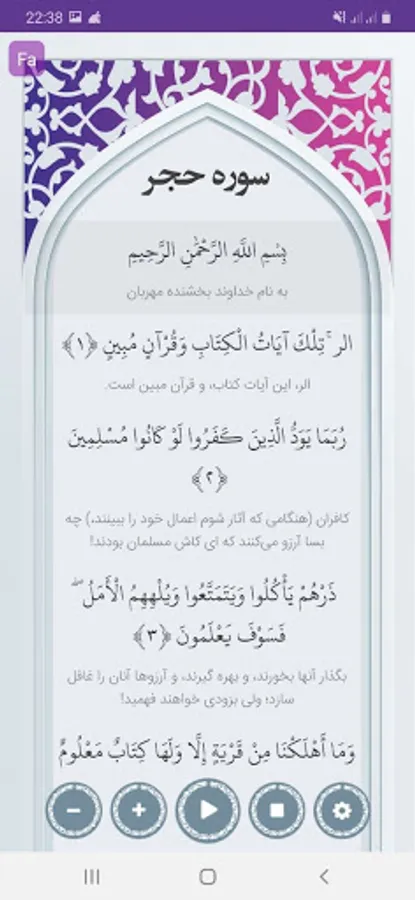 22:38
Fa
سوره حجر
بِسْمِ اللَّهِ الرَّحْمَٰنِ الرَّحِيمِ
به نام خداوند بخشنده مهربان
الر ۚ تِلْكَ آيَاتُ الْكِتَابِ وَقُرْآنٍ مُبِينٍ ﴿۱﴾
الر، این آیات کتاب، و قرآن مبین است.
رُبَمَا يَوَدُّ الَّذِينَ كَفَرُوا لَوْ كَانُوا مُسْلِمِينَ
﴿۲﴾
کافران (هنگامی که آثار شوم اعمال خود را ببینند،) چه
بسا آرزو می‌کنند که ای کاش مسلمان بودند!
ذَرْهُمْ يَأْكُلُوا وَيَتَمَتَّعُوا وَيُلْهِهِمُ الْأَمَلُ ۖ
فَسَوْفَ يَعْلَمُونَ ﴿۳﴾
بگذار آنها بخورند، و بهره گیرند، و آرزوها آنان را غافل
سازد؛ ولی بزودی خواهند فهمید!
وَمَا أَهْلَكْنَا مِنْ قَرْيَةٍ إِلَّا وَلَهَا كِتَابٌ مَعْلُومٌ